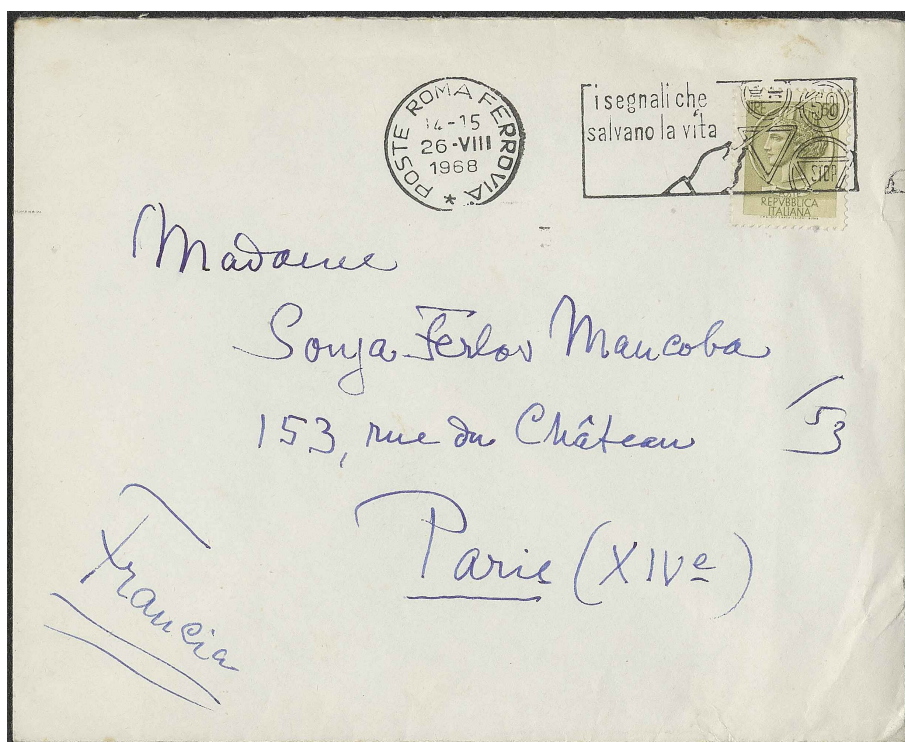 POSTE ROMA FERROVIA *
14-15
26-VIII
1968
i segnali che
salvano la vita
STOP
REPVBBLICA
ITALIANA
Madame
Sonja Ferlov Mancoba
153, rue du Château
153
Paris (XIVe)
Francia